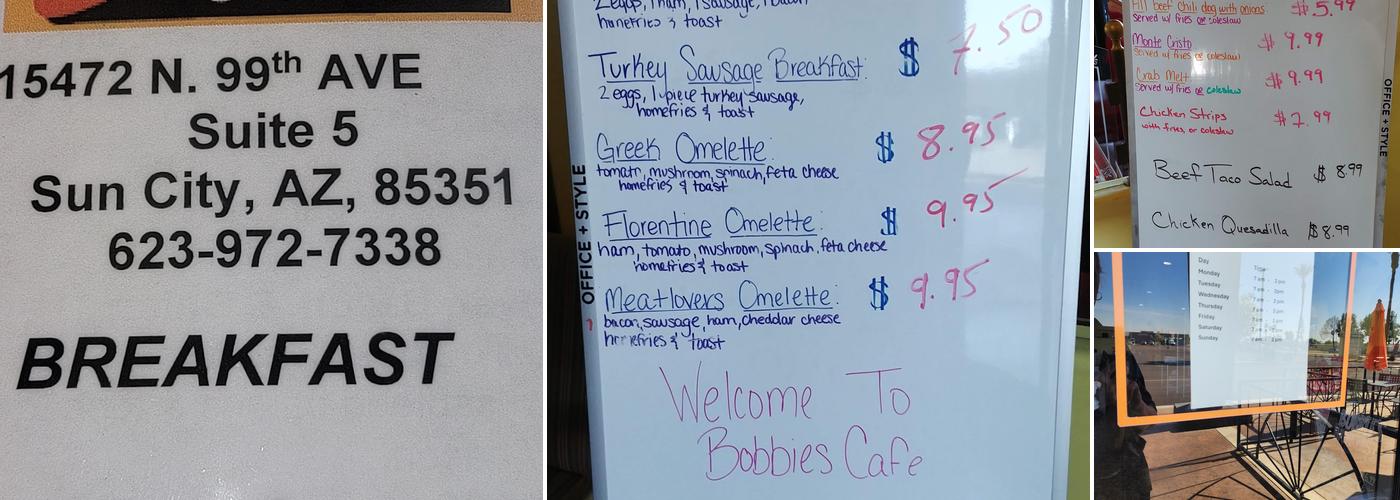 15472 N. 99th AVE
Suite 5
Sun City, AZ, 85351
623-972-7338
BREAKFAST
2 eggs, 1 ham, 1 sausage, 1 bacon
homefries & toast
7.50
Turkey Sausage Breakfast: $
2 eggs, 1 piece turkey sausage,
homefries & toast
Greek Omelette: $ 8.95
tomato, mushroom, spinach, feta cheese
homefries & toast
Florentine Omelette: $ 9.95
ham, tomato, mushroom, spinach, feta cheese
homefries & toast
Meatlovers Omelette: $ 9.95
bacon, sausage, ham, cheddar cheese
homefries & toast
Welcome To
Bobbies Cafe
OFFICE + STYLE
All beef Chili dog with onions $5.99
served w/ fries or coleslaw
Monte Cristo $9.99
served w/ fries or coleslaw
Crab Melt $9.99
served w/ fries or coleslaw
Chicken Strips $7.99
with fries, or coleslaw
Beef Taco Salad $8.99
Chicken Quesadilla $8.99
OFFICE + STYLE
Day Time
Monday
Tuesday
Wednesday
Thursday
Friday
Saturday
Sunday